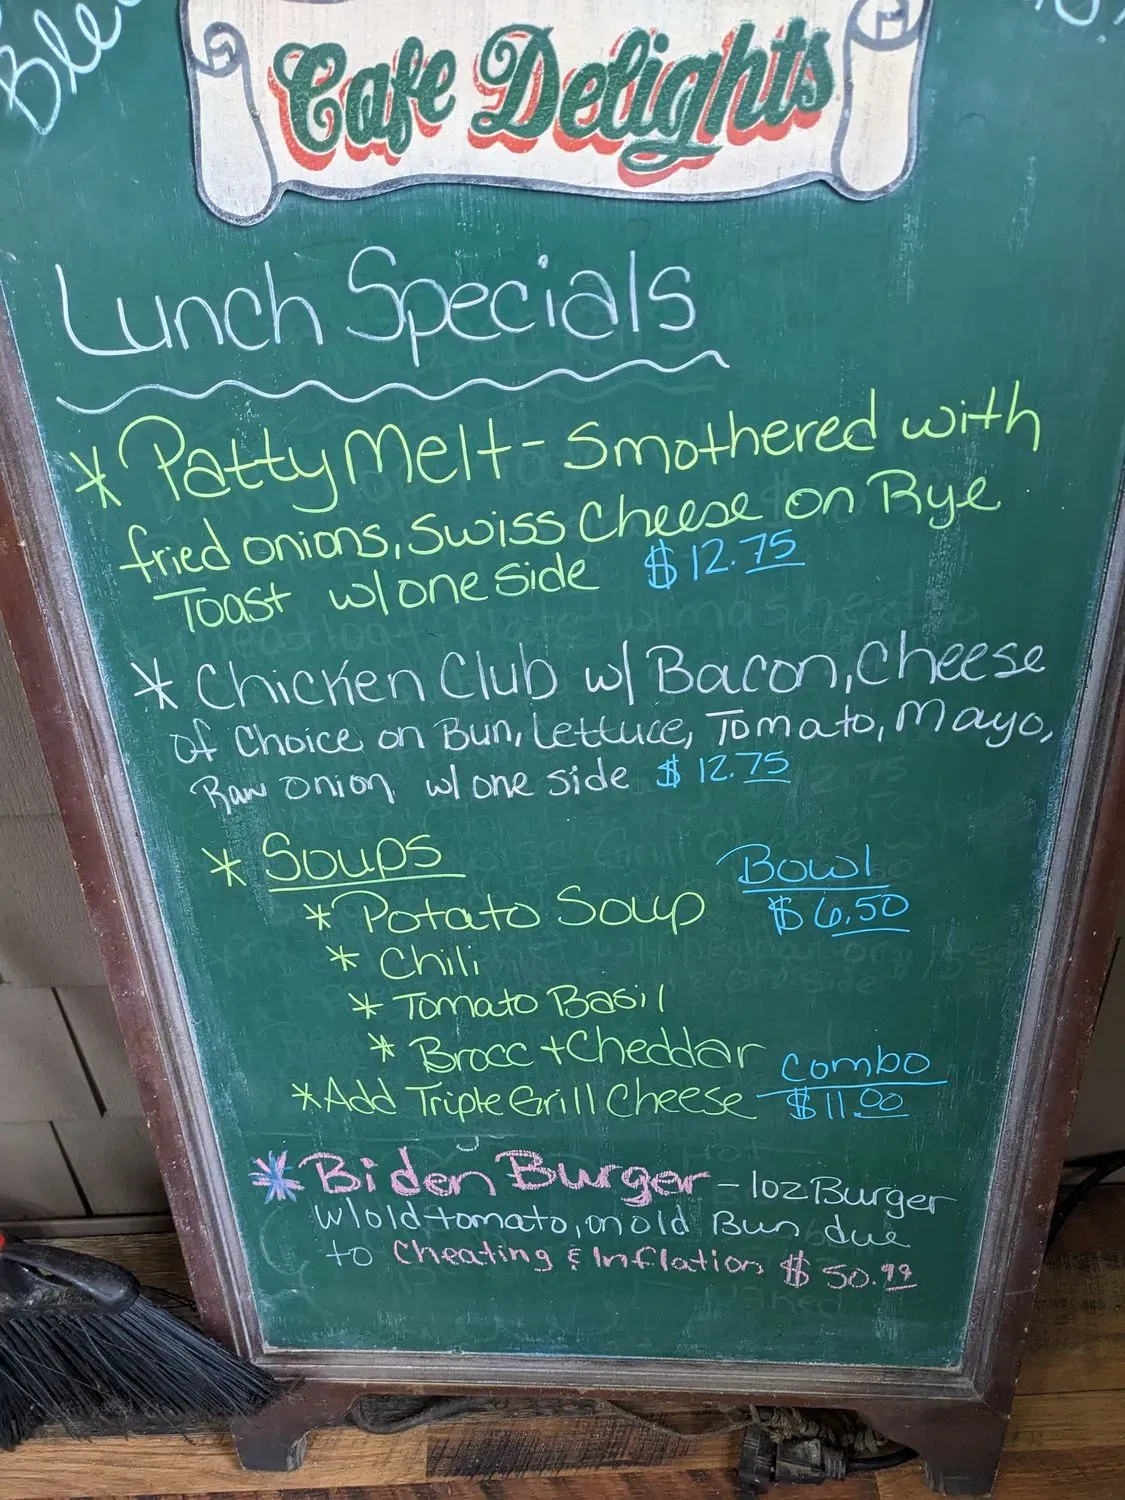 Cafe Delights
Lunch Specials
* Patty Melt - Smothered with
fried onions, Swiss Cheese on Rye
Toast w/ one side $12.75
* Chicken Club w/ Bacon, Cheese
of Choice on Bun, Lettuce, Tomato, Mayo,
Raw onion w/ one side $12.75
* Soups Bowl
* Potato Soup $6.50
* Chili
* Tomato Basil
* Brocc + Cheddar Combo
* Add Triple Grill Cheese $11.00
* Biden Burger - 1oz Burger
w/ old tomato, on old Bun due
to Cheating & Inflation $50.99